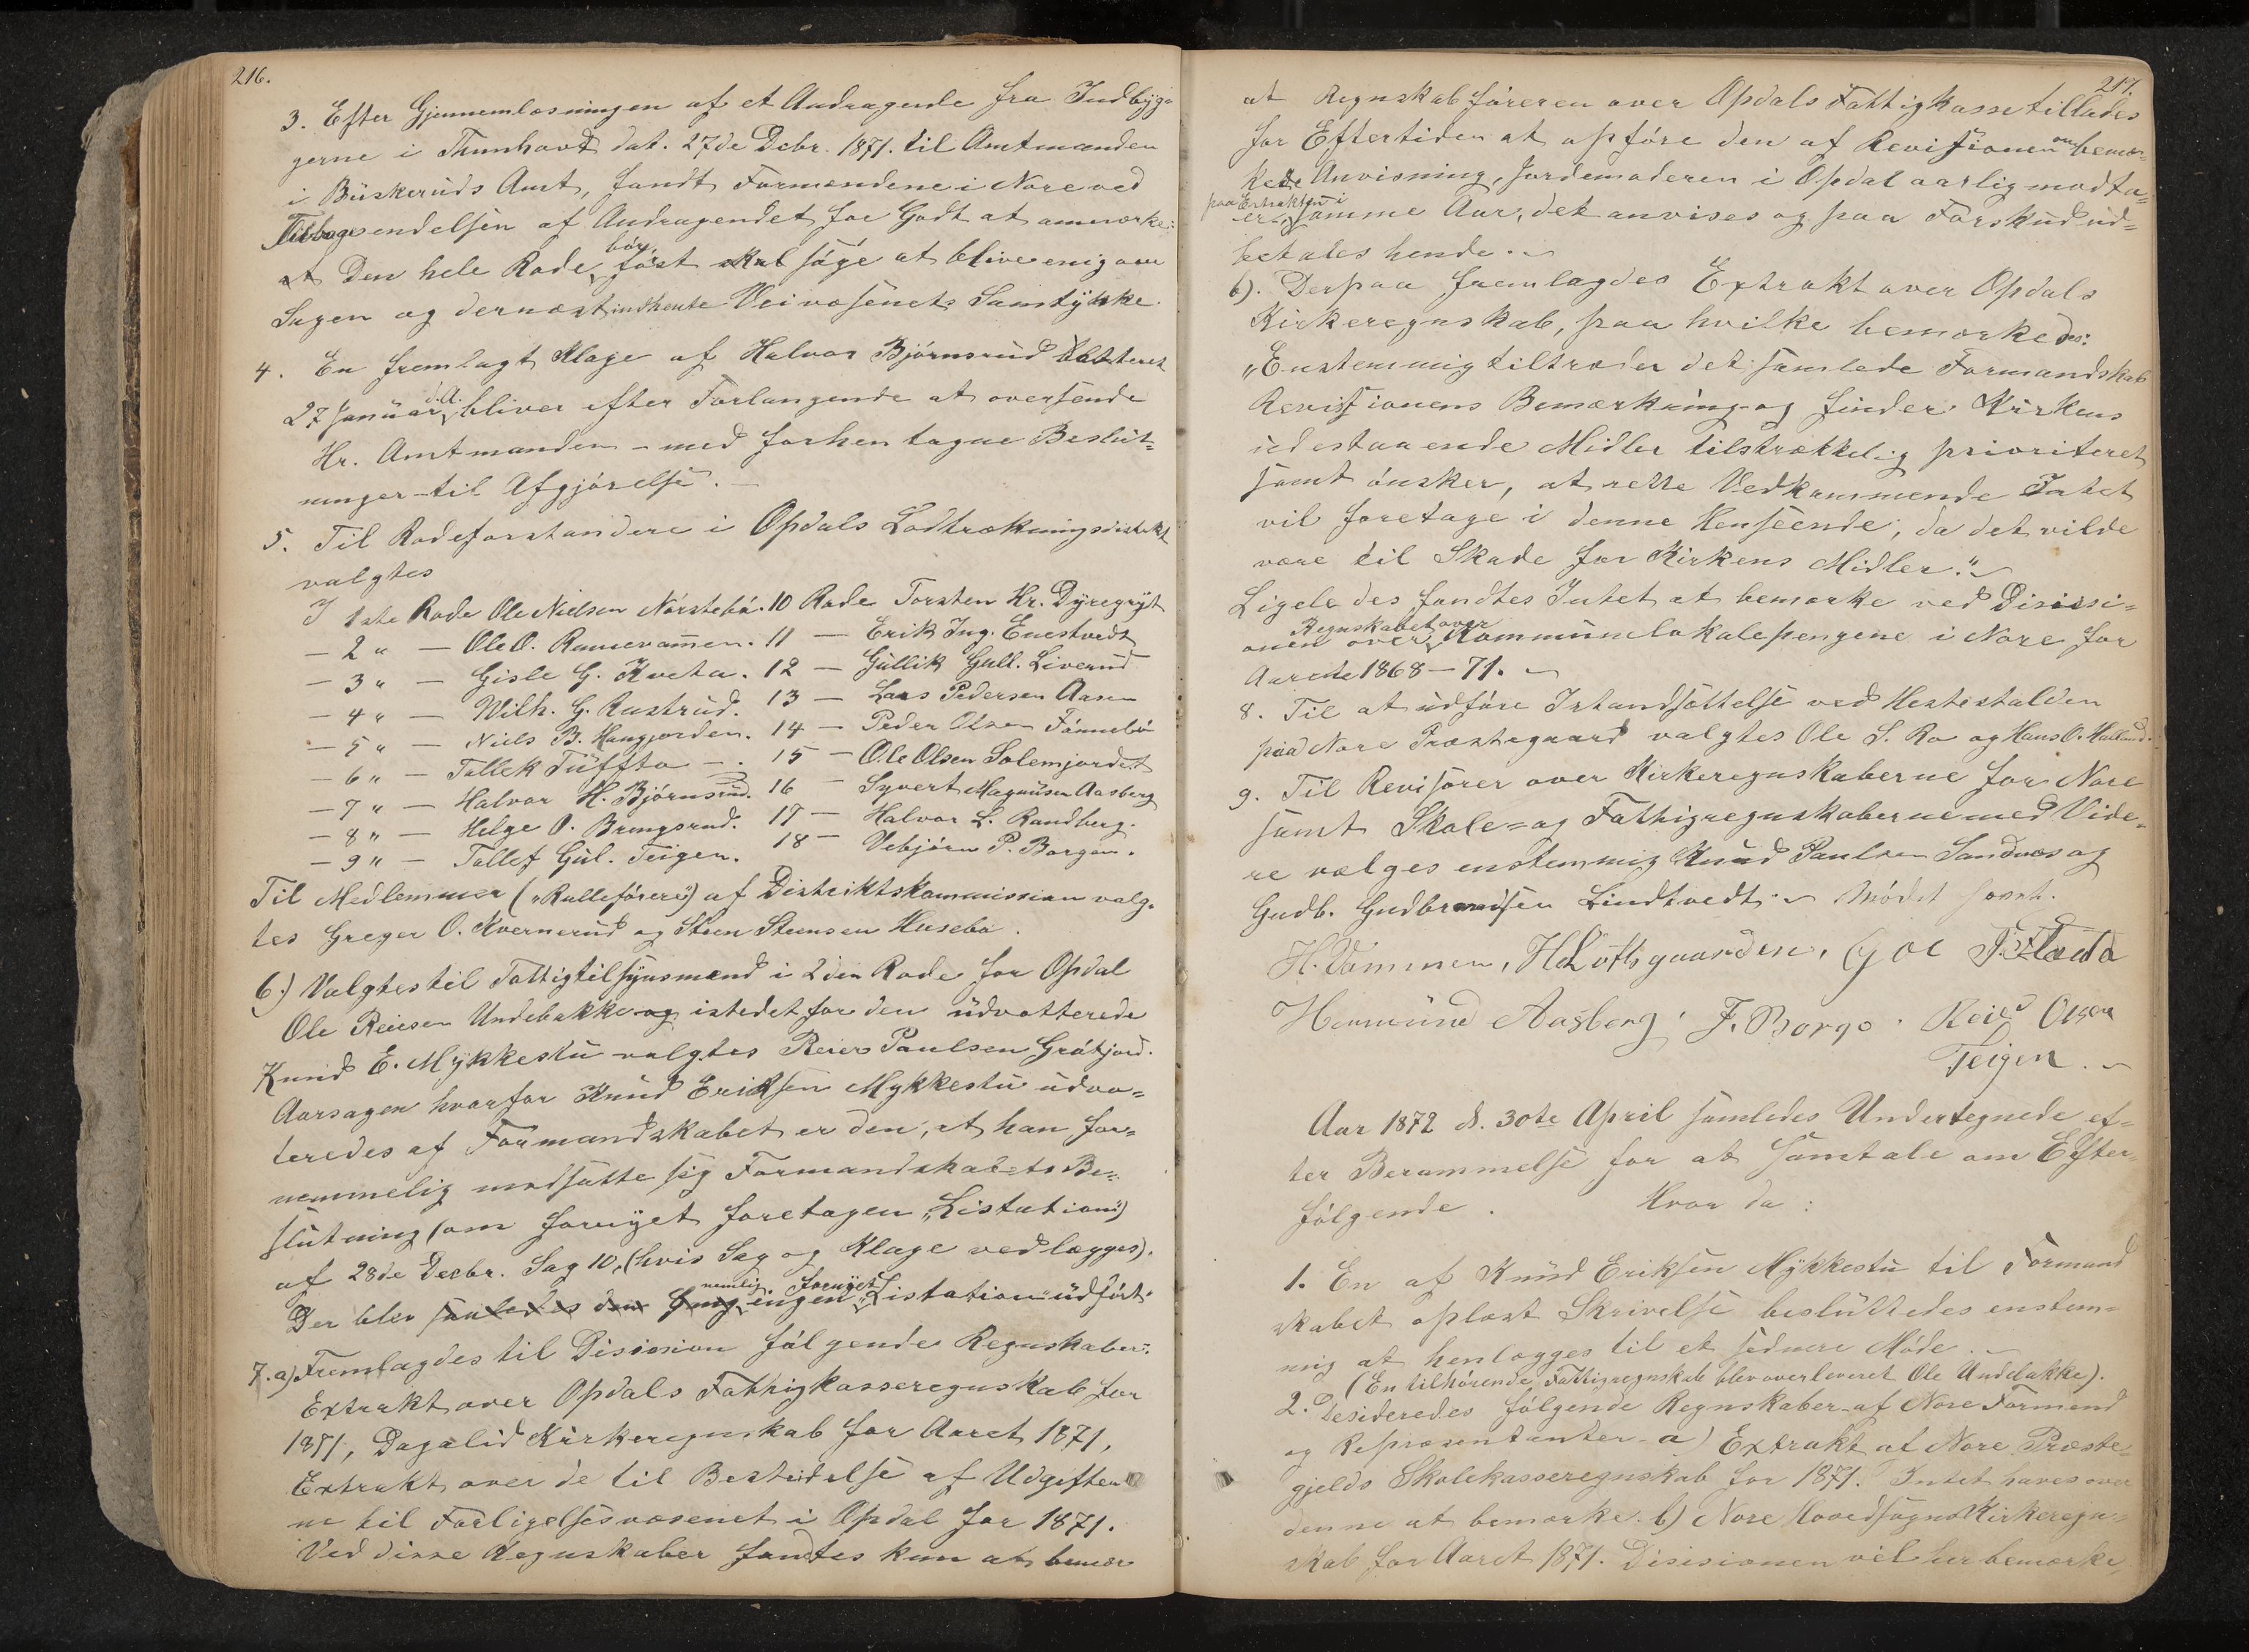 216.
3. Efter Gjennemlæsningen af et Andragende fra Indbyg-
gerne i Thunhovd dat. 27de Debr. 1871. til Amtmanden
i Buskeruds Amt, fandt Formændene i Nore ved
Tilbagesendelsen af Andragendet for Godt at anmærke:
at Den hele Rode bør først skal søge at blive enig om
Sagen og dernæst indhente Veivæsenets Samtykke.
4. En fremlagt Klage af Halvor Bjørnsrud datteret
27 Januar d.A. bliver efter Forlangende at oversende
Hr. Amtmanden - med forhen tagne Beslut-
ninger - til Afgjørelse. -
5. Til Rodeforstandere i Opdals Lodtrækningsdistrikt
valgtes
I 1ste Rode Ole Nielsen Nørstebø. 10 Rode Torsten Kr. Dyregryt
- 2 " - Ole O. Ramsvammen. 11 - Erik Ing. Enestvedt
- 3 " - Gisle G. Kveta. 12 - Gullik Gull. Liverud
- 4 " - Wilh. G. Rustrud. 13 - Lars Pedersen Aasen
- 5 " - Niels B. Haugjorden. 14 - Peder Olsen Fønnebø
- 6 " - Tollek Tuffto - . 15 - Ole Olsen Solemjordet
- 7 " - Halvor H. Bjørnsrud. 16 - Syvert Magnusen Aasberg
- 8 " - Helge O. Bringsrud. 17 - Halvor L. Randberg.
- 9 " - Tollef Gul. Teigen. 18 - Vebjørn P. Borgen.
Til Medlemmer ("Rulleførere") af Distriktskommission valg-
tes Greger O. Kvernerud og Steen Steensen Husebø.
6.) Valgtes til Fattigtilsynsmænd i 2den Rode for Opdal
Ole Reiersen Undebakke og istedet for den udvotterede
Knud E. Mykkestu valgtes Reier Paulsen Grøtjord.
Aarsagen hvorfor Knud Eriksen Mykkestu udvo-
teredes af Formandskabet er den, at han for-
nemmelig modsatte sig Formandskabets Be-
slutning (om fornyet foretagen "Listation")
af 28de Decbr. Sag 10, (hvis Sag og Klage vedlægges).
Der blev saaledes den Gang nemlig ingen fornyet "Listation" udført.
7. a) Fremlagdes til Disision følgende Regnskaber:
Extrakt over Opdals Fattigkasseregnskab for
1871, Dagalid Kirkeregnskab for Aaret 1871,
Extrakt over de til Bestridelse af Udgifter-
ne til Forligelsesvæsenet i Opdal for 1871.
Ved disse Regnskaber fandtes kun at bemær
217.
at Regnskabsføreren over Opdals Fattigkasse tillades
for Eftertiden at opføre den af Revisionen om bemær-
kede Anvisning, Jordemoderen i Opdal aarlig modta-
er, paa Extrakten i samme Aar, det anvises og paa Forskud ud-
betales hende. -
b). Derpaa fremlagdes Extrakt over Opdals
Kirkeregnskab, paa hvilke bemærkedes:
"Enstemmig tiltræder det samlede Formandskab
Revisionens Bemærkning og finder Kirkens
udestaaende Midler tilstrækkelig prioriteret
samt ønsker, at rette Vedkommende Intet
vil foretage i denne Henseende, da det vilde
være til Skade for Kirkens Midler." -
Ligeledes fandtes Intet at bemærke ved Disisi-
onen over Regnskabet over Kommunelokalepengene i Nore for
Aarene 1868 - 71. -
8. Til at udføre Istandsættelse ved Hestestalden
paa Nore Præstegaard valgtes Ole S. Ro og Hans O. Halland.
9. Til Revisører over Kirkeregnskaberne for Nore
samt Skole- og Fattigregnskaberne med Vide-
re vælges enstemmig Knud Paulsen Sandnes og
Gudb. Gudbrandsen Lindtvedt. - Mødet hævet.
H. Vammen, H Loftsgaarden, G O E T. Fladd
Hermund Aasberg. F. Borge. Reier Olsen
Teigen. -
Aar 1872 d. 30te April samledes Undertegnede ef-
ter Berammelse for at samtale om Efter-
følgende. Hvor da:
1. En af Knud Eriksen Mykkestu til Formand
skabet oplæst Skrivelse besluttedes enstem-
mig at henlægges til et sednere Møde. -
(En tilhørende Fattigregnskab blev overleveret Ole Undebakke).
2. Desideredes følgende Regnskaber af Nore Formænd
og Repræsentanter - a) Extrakt af Nore Præste-
gjelds Skolekasseregnskab for 1871. Intet haves over
denne at bemærke. b) Nore Hovedsogns Kirkeregn-
skab for Aaret 1871. Disisionen vil her bemærke,